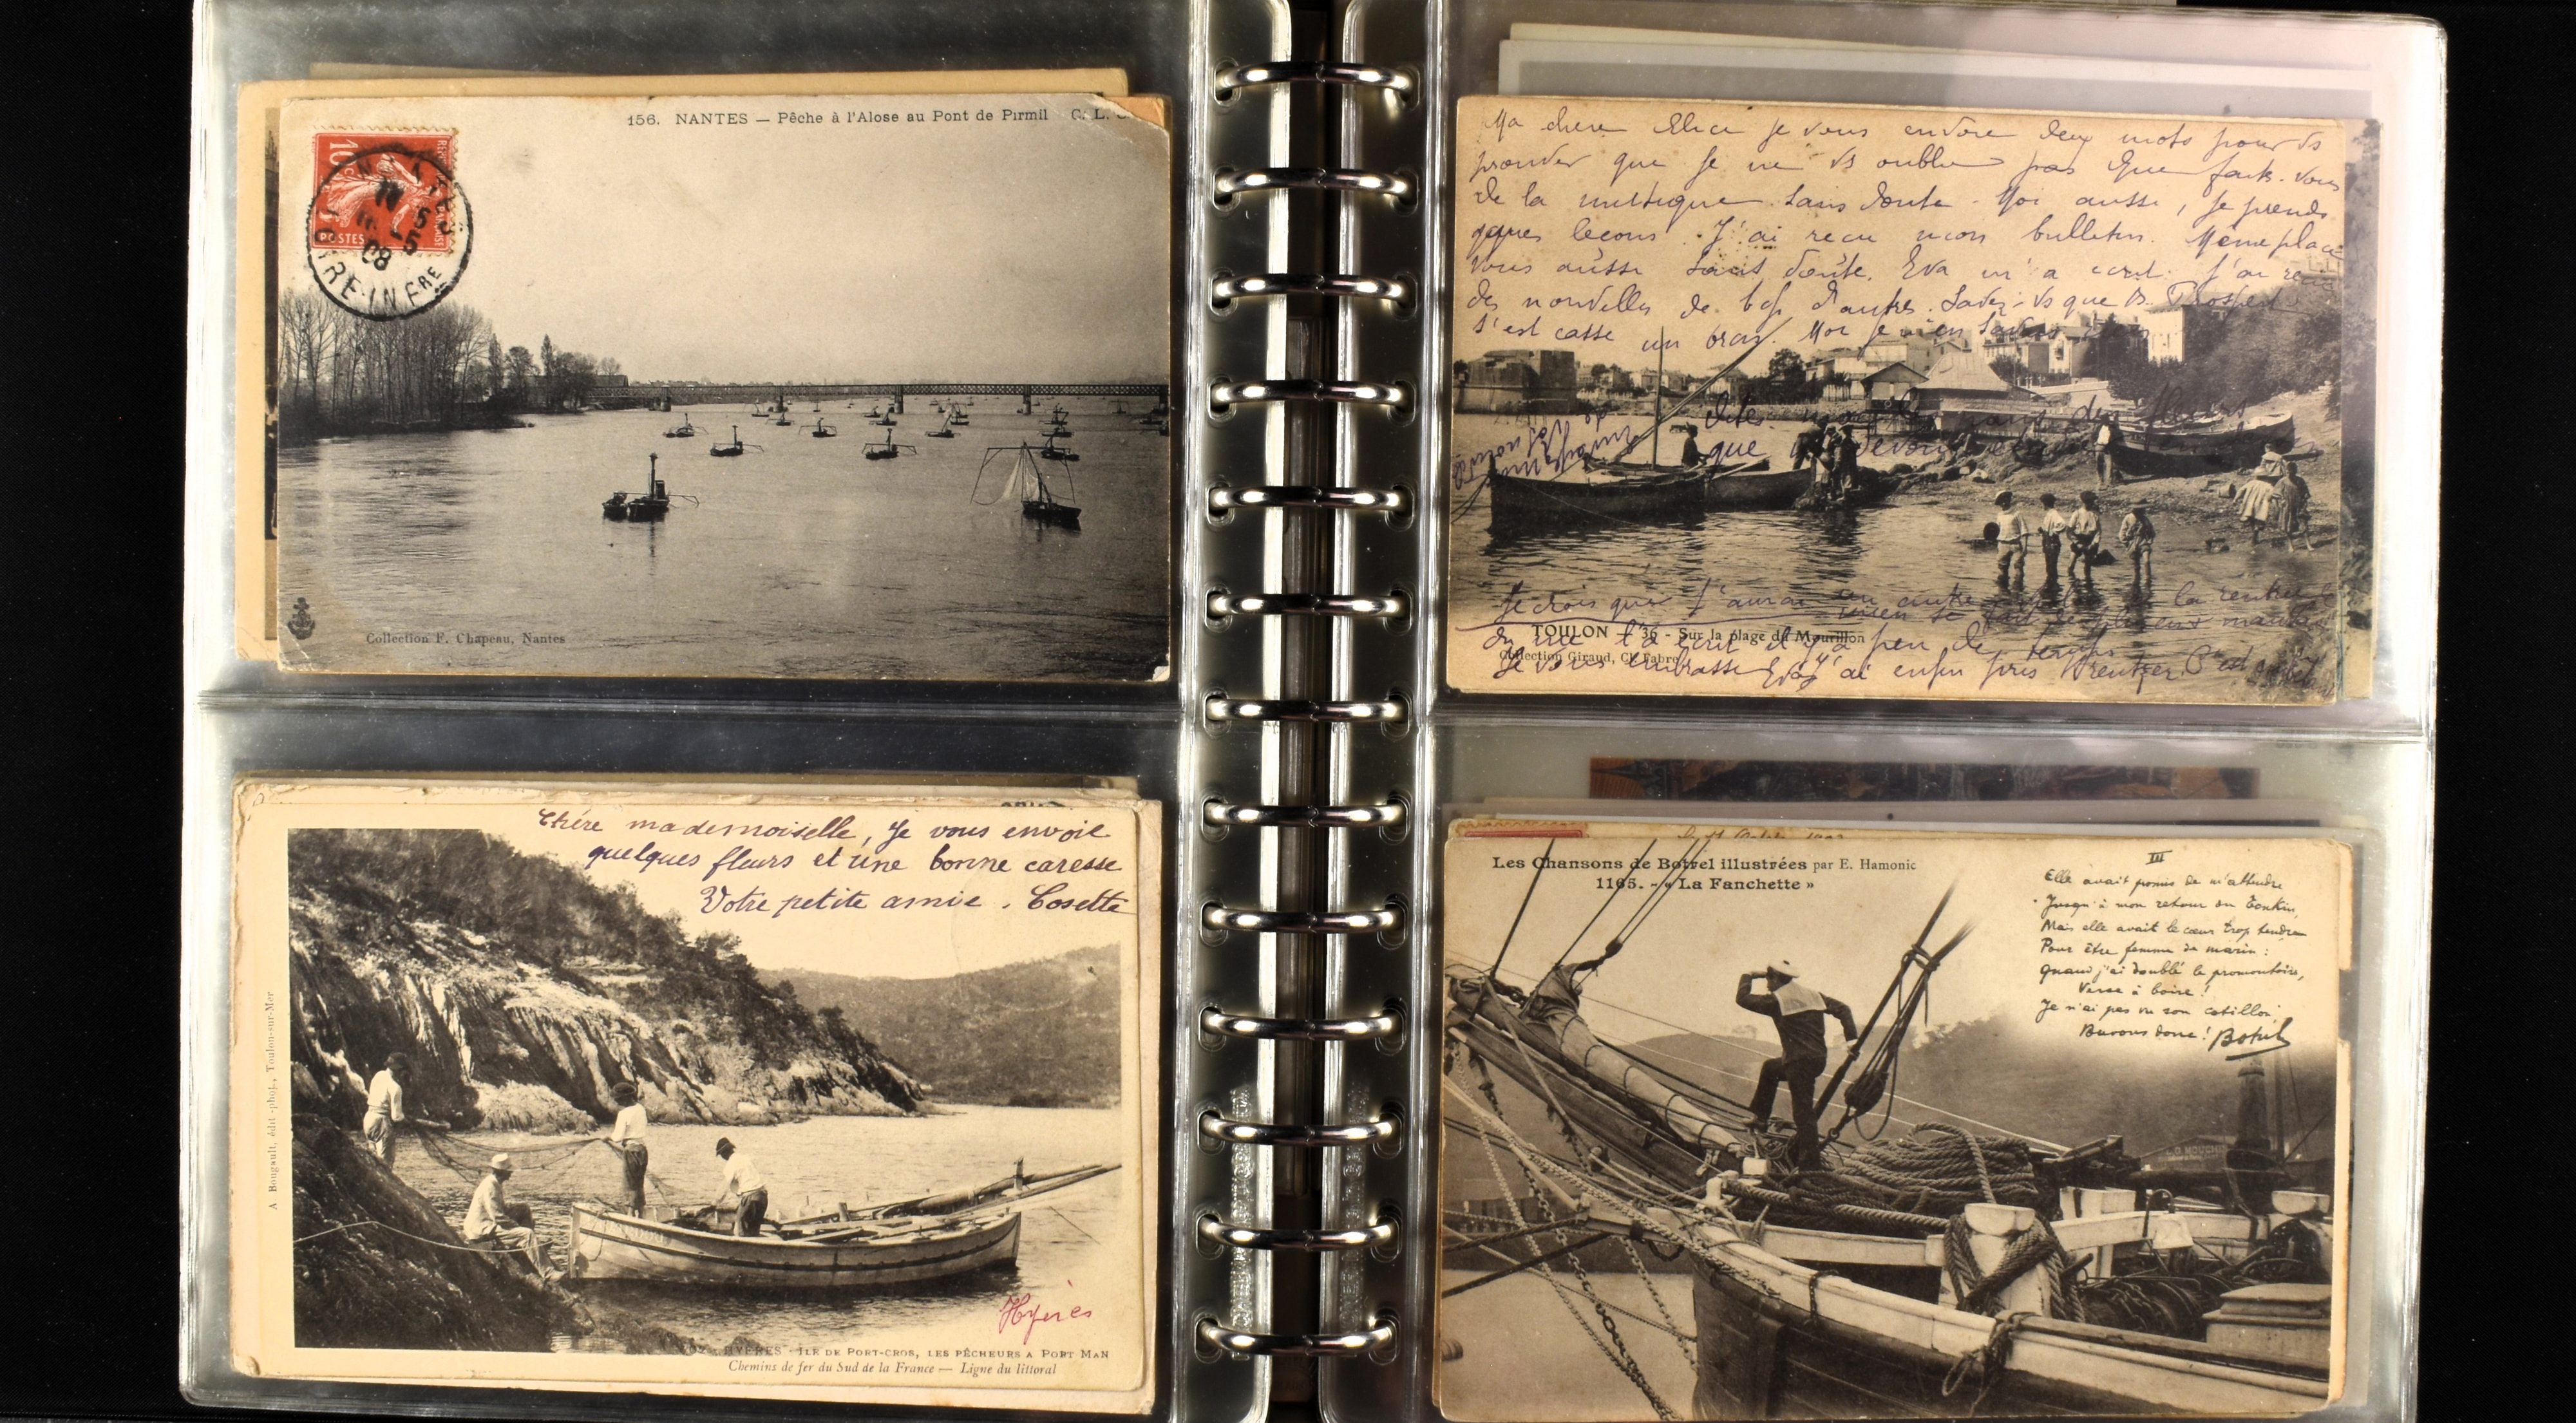 156. NANTES — Pêche à l'Alose au Pont de Pirmil C. L. C
10c
POSTES
NANTES
5
08
LOIRE-INFRE
Collection F. Chapeau, Nantes
Chère mademoiselle, Je vous envoie
quelques fleurs et une bonne caresse
Votre petite amie. Cosette
A Bougault, édit-phot., Toulon-sur-Mer
Hyères
HYÈRES - ILE DE PORT-CROS, LES PÊCHEURS A PORT MAN
Chemins de fer du Sud de la France — Ligne du littoral
Ma chere Elice je vous envoie deux mots pour vs
prouver que je ne vs oublie pas Que faites-vous
de la musique sans doute - Moi aussi, je prends
qques lecons. J'ai recu mon bulletin. Meme place
vous aussi sans doute. Eva m'a ecrit. J'ai recu
des nouvelles de bcp d'autres. Savez-vs que B. Prosper
s'est casse un bras. Moi je
que
Je crois que j'aurai un autre la rentrée
TOULON - 36 - Sur la plage du Mourillon
on me l'a ecrit il y a peu de temps
Collection Giraud, Cl. Fabre
Je vous embrasse Eva j'ai enfin pris rentrer C'est
Les Chansons de Botrel illustrées par E. Hamonic
1165. - « La Fanchette »
III
Elle avait promis de m'attendre
Jusqu'à mon retour du Tonkin,
Mais elle avait le cœur trop tendre
Pour être femme de marin :
Quand j'ai doublé le promontoire,
Verse à boire !
Je n'ai pas vu son cotillon,
Buvons donc ! Botrel